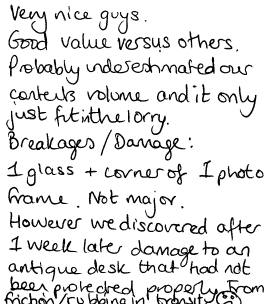 Very nice guys.
Good value versus others.
Probably underestimated our
contents volume and it only
just fit in the lorry.
Breakages / Damage:
1 glass + corner of 1 photo
frame. Not major.
However we discovered after
1 week later damage to an
antique desk that had not
been protected properly from
friction/rubbing in transit ☹